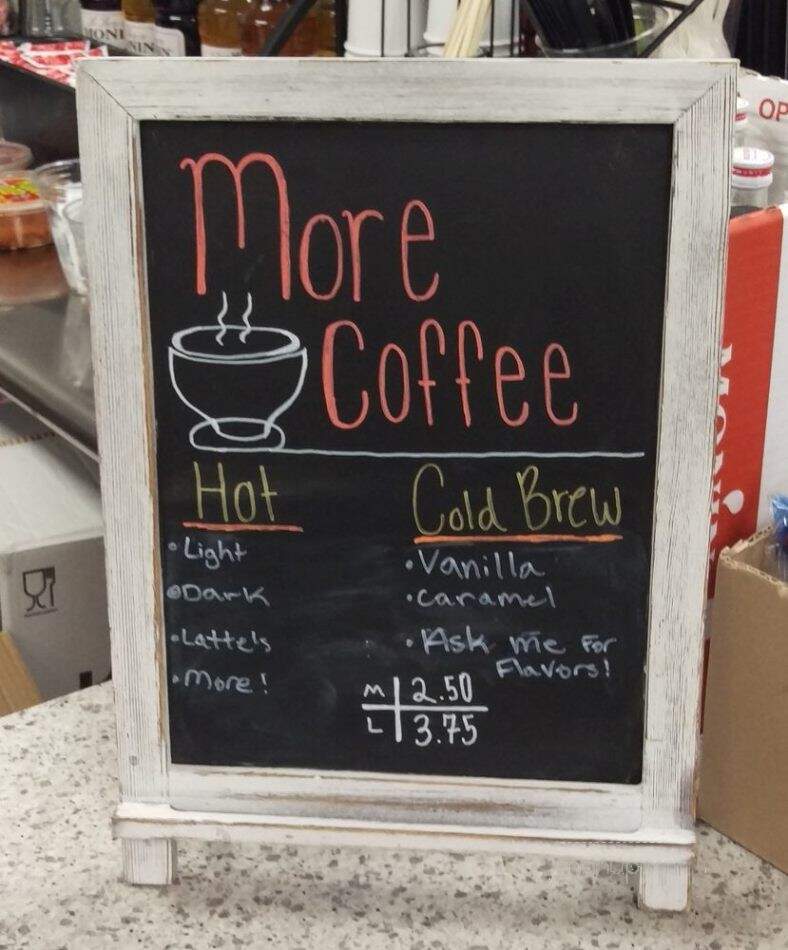 MONIN
More
Coffee
Hot
• Light
• Dark
• Latte's
• More!
Cold Brew
• Vanilla
• caramel
• Ask me For
Flavors!
M 2.50
L 3.75
OP